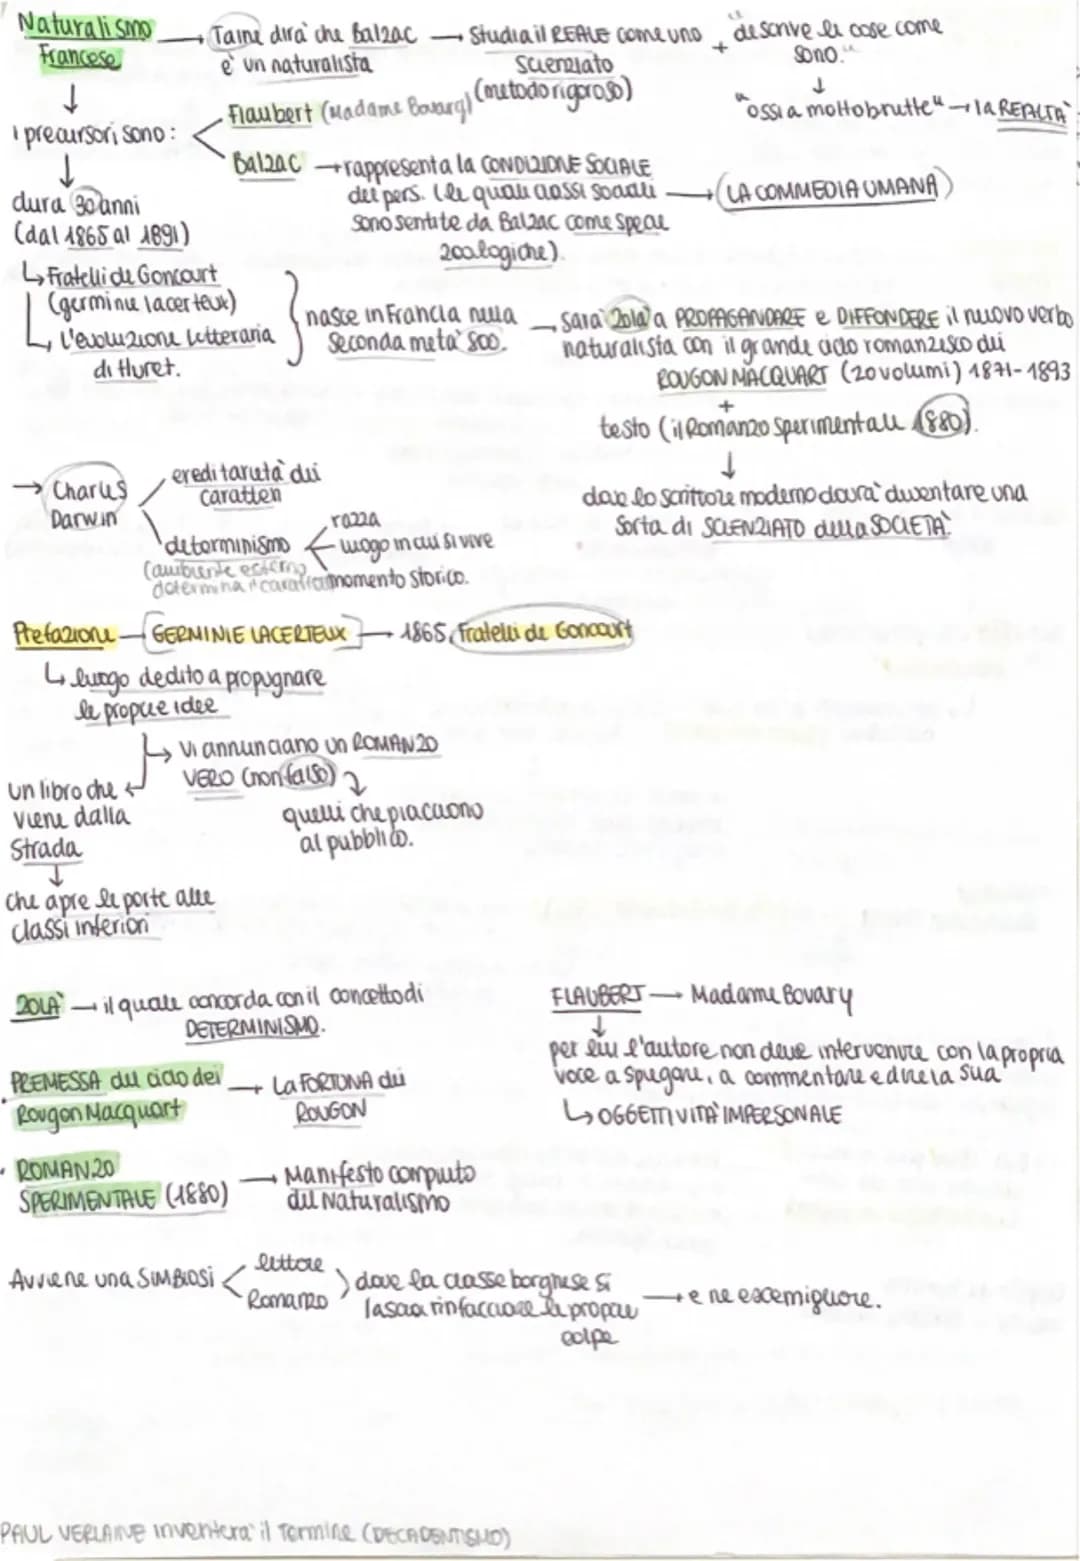 Naturalismo Francese
Taine dirà che Balzac è un naturalista
Studia il REALE come uno scienziato (metodo rigoroso)
+ "descrive le cose come sono"
"ossia molto brutte" → la REALTÀ
I precursori sono:
Flaubert (Madame Bovary)
Balzac → rappresenta la CONDIZIONE SOCIALE
dei pers. (le quali classi sociali
sono sentite da Balzac come specie
zoologiche).
(LA COMMEDIA UMANA)
dura 30 anni
(dal 1865 al 1891)
Fratelli de Goncourt
(germinie lacerteux)
L'evoluzione letteraria
di Huret.
nasce in Francia nella
seconda metà 800.
Sarà Zola a PROPAGANDARE e DIFFONDERE il nuovo verbo
naturalista con il grande ciclo romanzesco dei
ROUGON MACQUART (20 volumi) 1871-1893
+
testo (il Romanzo sperimentale 1880).
dove lo scrittore moderno dovrà diventare una
sorta di SCIENZIATO della SOCIETÀ.
→ Charles
Darwin
ereditarietà dei
caratteri
determinismo
(ambiente esterno
determina il carattere)
razza
luogo in cui si vive
momento storico.
Prefazione — GERMINIE LACERTEUX → 1865, Fratelli de Goncourt
luogo dedito a propugnare
le proprie idee
vi annunciano un ROMANZO
VERO (non falso)
quelli che piacciono
al pubblico.
un libro che
viene dalla
strada
che apre le porte alle
classi inferiori
ZOLÀ → il quale concorda con il concetto di
DETERMINISMO.
PREMESSA del ciclo dei
Rougon Macquart
→ La FORTUNA dei
ROUGON
ROMANZO
SPERIMENTALE (1880)
→ Manifesto compiuto
del Naturalismo
FLAUBERT → Madame Bovary
per lui l'autore non deve intervenire con la propria
voce a spiegare, a commentare e dire la sua
OGGETTIVITÀ IMPERSONALE
Avviene una SIMBIOSI
lettore
Romanzo
dove la classe borghese si
lascia rinfacciare le proprie
colpe
→ e ne esce migliore.
PAUL VERLAINE inventerà il termine (DECADENTISMO)